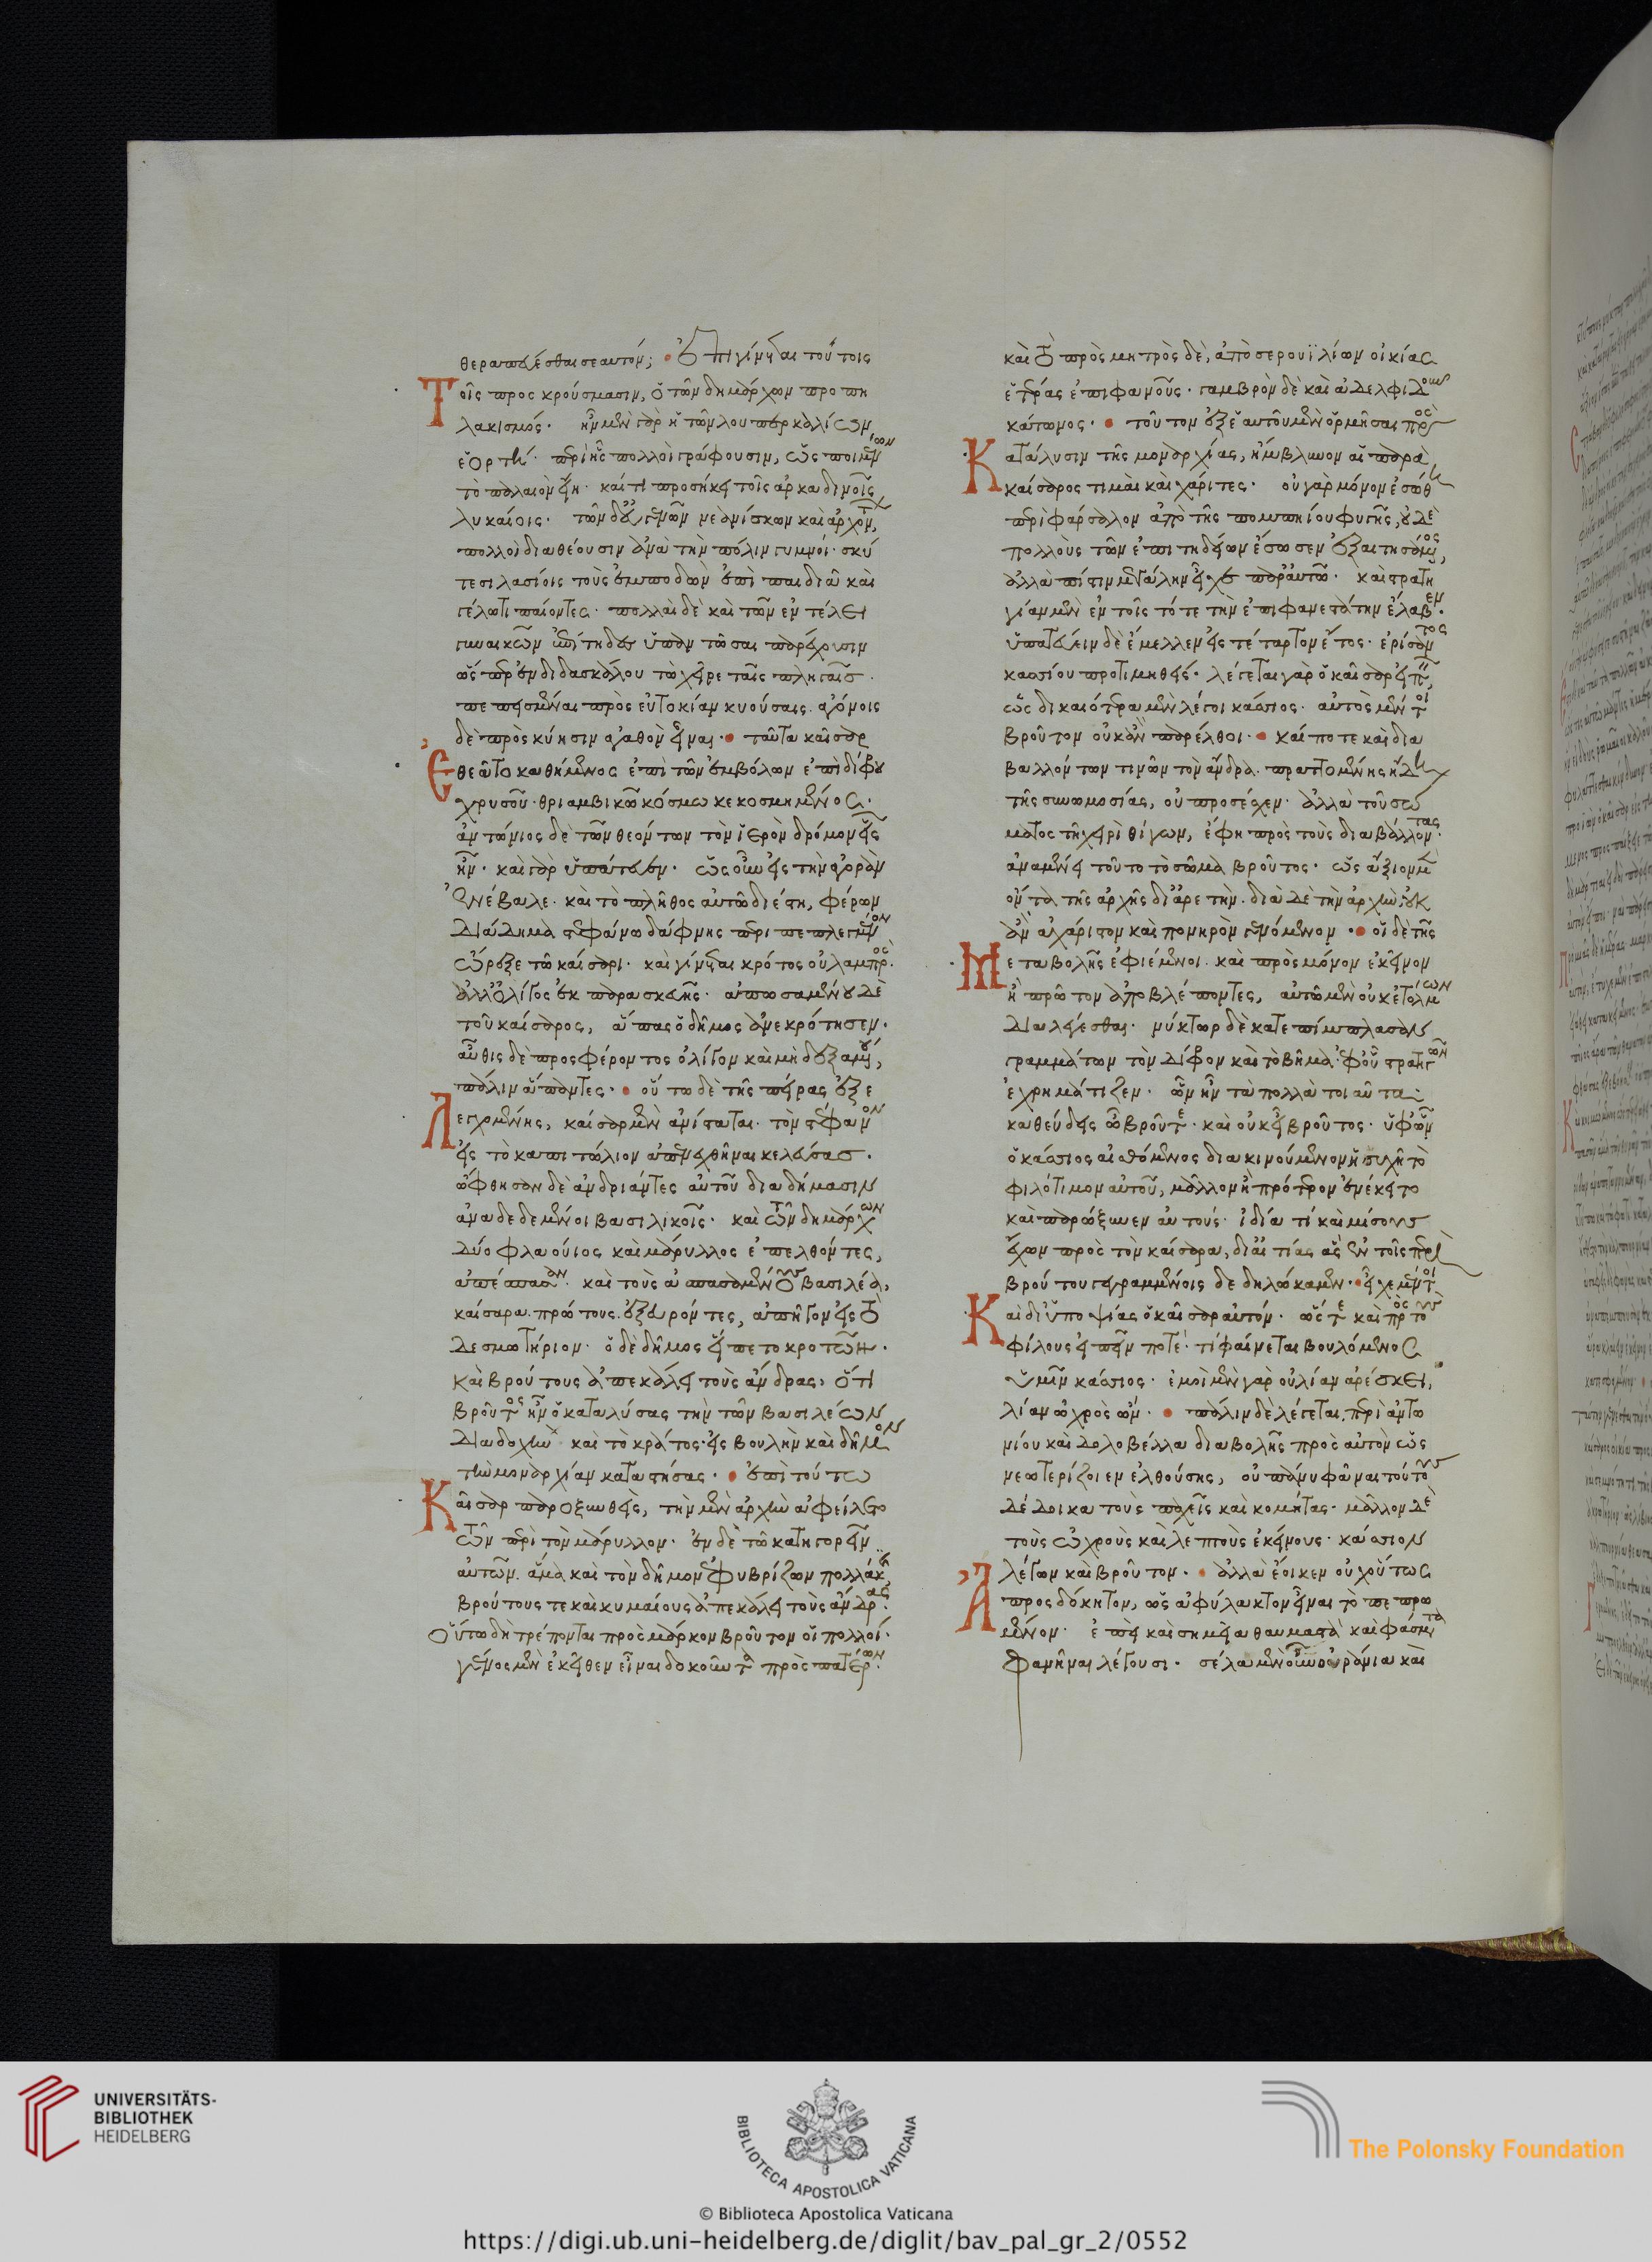 θεραπεύεσθαι σεαυτόν; · Ἐπιγίνεται τούτοις
Τοῖς προσκρούσμασιν, ὁ τῶν δημάρχων προπη
λακισμός. ἦν μὲν γὰρ ἡ τῶν λουπερκαλίων
ἑορτή. περὶ ἧς πολλοὶ γράφουσιν, ὡς ποιμένων
τὸ παλαιὸν εἴη. καί τι προσήκει τοῖς ἀρκαδινοῖς
λυκαίοις. τῶν δ' εὐγενῶν νεανίσκων καὶ ἀρχόντων,
πολλοὶ διαθέουσιν ἀνὰ τὴν πόλιν γυμνοί. σκύ
τεσι λασίοις τοὺς ἐμποδὼν ἐπὶ παιδιᾷ καὶ
γέλωτι παίοντες. πολλαὶ δὲ καὶ τῶν ἐν τέλει
γυναικῶν ἐπίτηδες ὑπαντῶσαι παρέχουσιν
ὥσπερ ἐν διδασκάλου τὼ χεῖρε ταῖς πληγαῖς.
πεπεισμέναι πρὸς εὐτοκίαν κυούσαις. ἀγόνοις
δὲ πρὸς κύησιν ἀγαθὸν εἶναι. · ταῦτα καῖσαρ
Ἐθεᾶτο καθήμενος ἐπὶ τῶν ἐμβόλων ἐπὶ δίφρου
χρυσοῦ. θριαμβικῷ κόσμῳ κεκοσμημένος.
ἀντώνιος δὲ τῶν θεόντων τὸν ἱερὸν δρόμον εἷς
ἦν. καὶ γὰρ ὑπάτευεν. ὡς οὖν εἰς τὴν ἀγορὰν
ἐνέβαλε. καὶ τὸ πλῆθος αὐτῷ διέστη, φέρων
διάδημα στεφάνῳ δάφνης περιπεπλεγμένον
ὤρεξε τῷ καίσαρι. καὶ γίνεται κρότος οὐ λαμπρὸς.
ἀλλ' ὀλίγος ἐκ παρασκευῆς. ἀπωσαμένου δὲ
τοῦ καίσαρος, ἅπας ὁ δῆμος ἀνεκρότησεν.
αὖθις δὲ προσφέροντος ὀλίγον καὶ μὴ δεξαμένου,
πάλιν ἅπαντες. · οὕτω δὲ τῆς πείρας ἐξε
Λεγχομένης, καῖσαρ μὲν ἀνίσταται. τὸν στέφανον
εἰς τὸ καπιτώλιον ἀπενεχθῆναι κελεύσας.
ὤφθησαν δὲ ἀνδριάντες αὐτοῦ διαδήμασιν
ἀναδεδεμένοι βασιλικοῖς. καὶ τῶν δημάρχων
δύο φλαούιος καὶ μάρυλλος ἐπελθόντες,
ἀπέσπασαν. καὶ τοὺς ἀσπασαμένους βασιλέα,
καίσαρα. πρώτους. ἐξευρόντες, ἀπῆγον εἰς τὸ
δεσμωτήριον. ὁ δὲ δῆμος εἵπετο κροτῶν.
καὶ βρούτους ἀπεκάλει τοὺς ἄνδρας, ὅτι
βροῦτος ἦν ὁ καταλύσας τὴν τῶν βασιλέων
διαδοχὴν καὶ τὸ κράτος. εἰς βουλὴν καὶ δῆμον
τὴν μοναρχίαν καταστήσας. · ἐπὶ τούτῳ
Καῖσαρ παροξυνθείς, τὴν μὲν ἀρχὴν ἀφείλετο
τῶν περὶ τὸν μάρυλλον. ἐν δὲ τῷ κατηγορεῖν
αὐτῶν. ἅμα καὶ τὸν δῆμον ἐφυβρίζων πολλάκις,
βρούτους τε καὶ κυμαίους ἀπεκάλει τοὺς ἄνδρας.
Οὕτω δὴ τρέπονται πρὸς μάρκον βροῦτον οἱ πολλοί.
γένος μὲν ἐκεῖθεν εἶναι δοκοῦντα πρὸς πατέρων.
καὶ τὸ πρὸς μητρὸς δὲ, ἀπὸ σερουϊλίων οἰκίας
ἑτέρας ἐπιφανοῦς. γαμβρὸν δὲ καὶ ἀδελφιδοῦν
κάτωνος. · τοῦτον ἐξ ἑαυτοῦ μὲν ὁρμῆσαι πρὸς
Κατάλυσιν τῆς μοναρχίας, ἤμβλυνον αἱ παρὰ
καίσαρος τιμαὶ καὶ χάριτες. οὐ γὰρ μόνον ἐσώθη
περὶ φάρσαλον ἀπὸ τῆς πομπηίου φυγῆς, οὐδὲ
πολλοὺς τῶν ἐπιτηδείων ἔσωσεν ἐξαιτησάμενος,
ἀλλὰ πίστιν μεγάλην εἶχε παρ' αὐτῷ. καὶ στρατη
γίαν μὲν ἐν τοῖς τότε τὴν ἐπιφανεστάτην ἔλαβεν.
ὑπατεύειν δὲ ἔμελλεν εἰς τέταρτον ἔτος. ἐρίσαντος
κασίου προτιμηθείς. λέγεται γὰρ ὁ καῖσαρ εἰπεῖν,
ὡς δικαιότερα μὲν λέγοι κάσσιος. αὐτὸς μέντοι
βροῦτον οὐκ ἂν παρέλθοι. · καί ποτε καὶ δια
βαλλόντων τινῶν τὸν ἄνδρα. πραττομένης ἤδη
τῆς συνωμοσίας, οὐ προσέσχεν. ἀλλὰ τοῦ σώ
ματος τῇ χειρὶ θίγων, ἔφη πρὸς τοὺς διαβάλλοντας.
ἀναμένει τοῦτο τὸ σῶμα βροῦτος. ὡς ἄξιον μὲν
ὄντα τῆς ἀρχῆς δι' ἀρετήν. διὰ δὲ τὴν ἀρχὴν, οὐκ
ἂν ἀχάριστον καὶ πονηρὸν γενόμενον. · οἱ δὲ τῆς
Μεταβολῆς ἐφιέμενοι. καὶ πρὸς μόνον ἐκεῖνον
ἢ πρῶτον ἀποβλέποντες, αὐτῷ μὲν οὐκ ἐτόλμων
διαλέγεσθαι. νύκτωρ δὲ κατεπίμπλασαν
γραμμάτων τὸν δίφρον καὶ τὸ βῆμα. ἐφ' οὗ στρατηγῶν
ἐχρημάτιζεν. ὧν ἦν τὰ πολλὰ τοιαῦτα.
καθεύδεις ὦ βροῦτε. καὶ οὐκ εἶ βροῦτος. ὑφ' ὧν
ὁ κάσσιος αἰσθόμενος διακινούμενον ἡσυχῆ τὸ
φιλότιμον αὐτοῦ, μᾶλλον ἢ πρότερον ἐνέκειτο
καὶ παρώξυνεν αὐτούς. ἰδίᾳ τί καὶ μίσους
ἔχων πρὸς τὸν καίσαρα, δι' αἰτίας ἃς ἐν τοῖς περὶ
βρούτου γεγραμμένοις δεδηλώκαμεν. · εἶχε μέντοι
Καὶ δι' ὑποψίας ὁ καῖσαρ αὐτόν. ὥστε καὶ πρὸς τοὺς
φίλους εἰπεῖν ποτέ. τί φαίνεται βουλόμενος
ὑμῖν κάσσιος. ἐμοὶ μὲν γὰρ οὐ λίαν ἀρέσκει,
λίαν ὠχρὸς ὤν. · πάλιν δὲ λέγεται, περὶ ἀντω
νίου καὶ δολοβέλλα διαβολῆς πρὸς αὐτὸν ὡς
νεωτερίζοιεν ἐλθούσης, οὐ πάνυ φᾶναι τούτους
δέδοικα τοὺς παχεῖς καὶ κομήτας. μᾶλλον δὲ
τοὺς ὠχροὺς καὶ λεπτοὺς ἐκείνους. κάσσιον
λέγων καὶ βροῦτον. · ἀλλὰ ἔοικεν οὐχ οὕτως
Ἀπροσδόκητον, ὡς ἀφύλακτον εἶναι τὸ πεπρω
μένον. ἐπεὶ καὶ σημεῖα θαυμαστὰ καὶ φάσματα
φανῆναι λέγουσι. σέλα μὲν οὖν οὐράνια καὶ
UNIVERSITÄTS-
BIBLIOTHEK
HEIDELBERG
BIBLIOTECA APOSTOLICA VATICANA
The Polonsky Foundation
© Biblioteca Apostolica Vaticana
https://digi.ub.uni-heidelberg.de/diglit/bav_pal_gr_2/0552